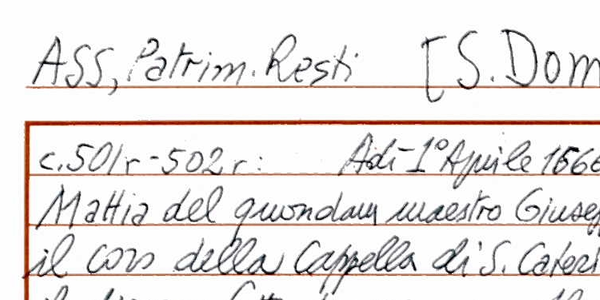 ASS, Patrim. Resti [S. Dom
c. 501r-502r: Adì 1° Aprile 166
Mattia del quondam maestro Giusep
il coro della Cappella di S. Cateri